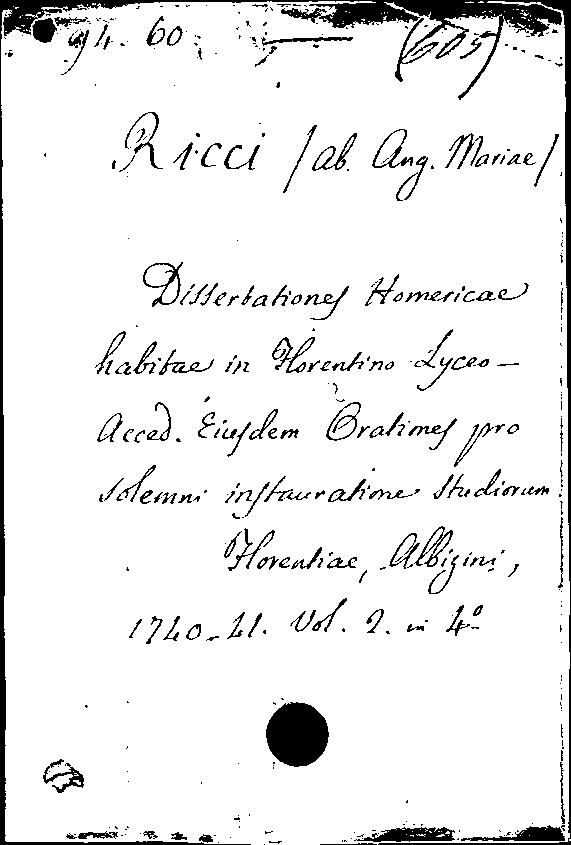 94. 60 — (605)
Ricci /ab. Ang. Mariae/
Dissertationes Homericae
habitae in Florentino Lyceo —
Acced. Eiusdem Orationes pro
solemni instauratione studiorum
Florentiae, Albizini,
1740-41. Vol. 2. in 4º